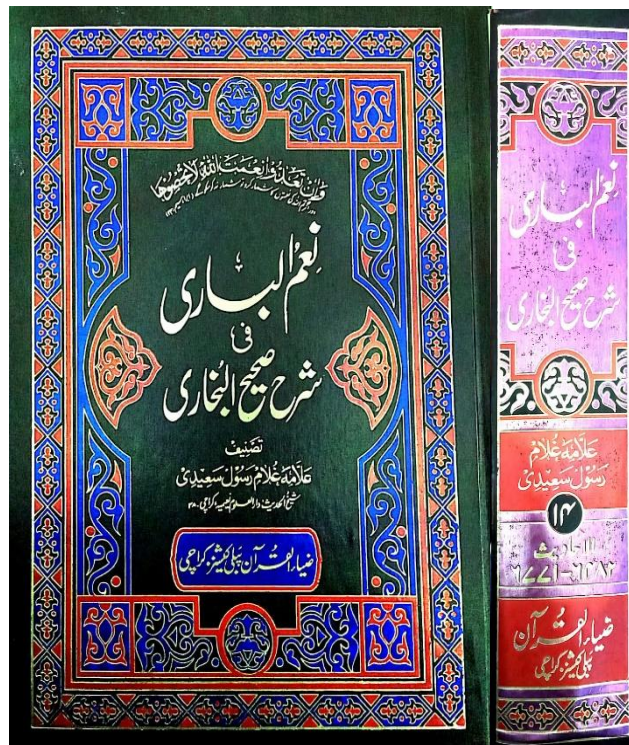 وَإِن تَعُدُّوا نِعْمَتَ اللّٰهِ لَا تُحْصُوهَا
نِعَم الباری
فی
شرح صحیح البُخاری
تصنیف
علامہ غلام رسول سعیدی
شیخ الحدیث دارالعلوم نعیمیہ کراچی ۔ ۳۸
ضیاء القرآن پبلی کیشنز کراچی
نِعَم الباری
فی
شرح صحیح البُخاری
علامہ غلام
رسول سعیدی
۱۴
الاحادیث
ضیاء القرآن
پبلی کیشنز کراچی